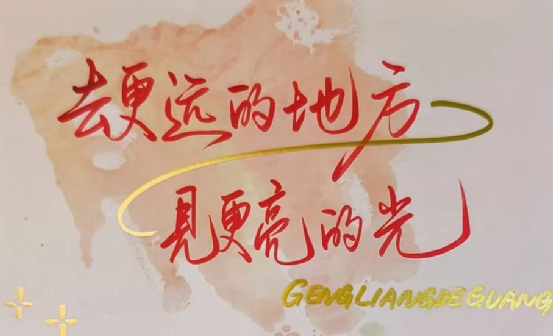 去更远的地方
见更亮的光
GENGLIANGDEGUANG